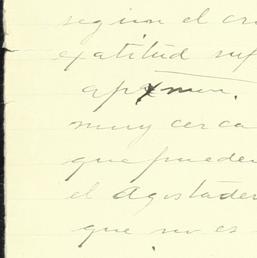 segun el
exatitud
muy cerca
que pueden
el Agostader
que no es